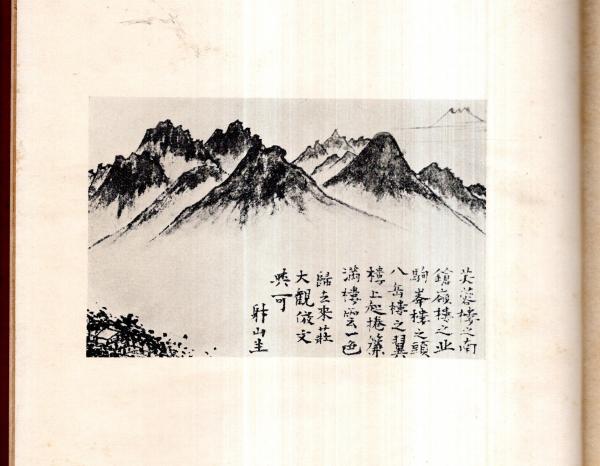 芙蓉樓之南
鎗嶽樓之北
駒峯樓之頭
八岳樓之翼
樓上起捲簾
滿樓雲一色
歸去来莊
大觀倣文
與可
山生